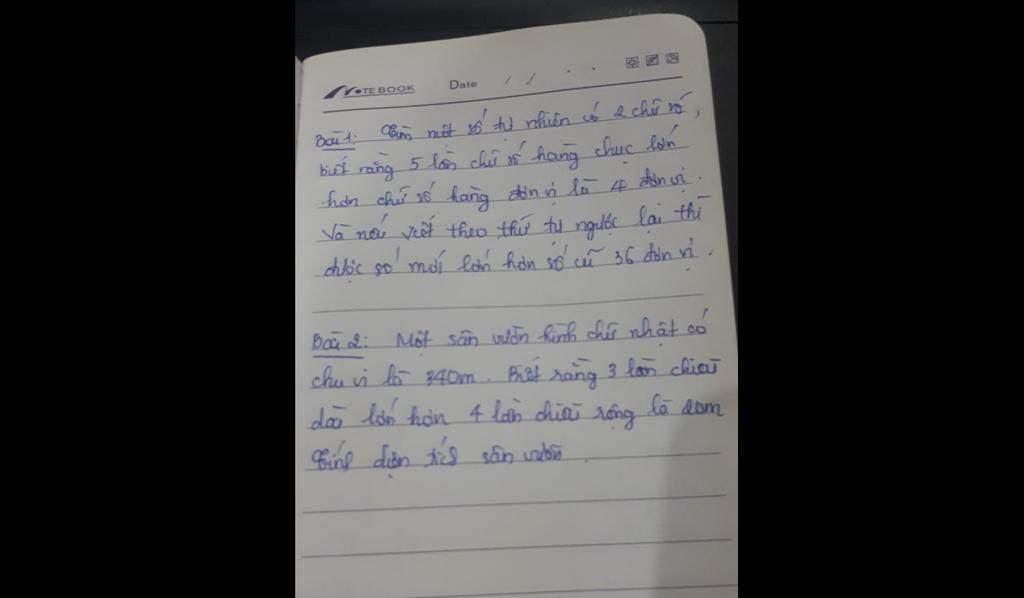 NOTEBOOK Date / /
Bài 1: Tìm một số tự nhiên có 2 chữ số,
biết rằng 5 lần chữ số hàng chục lớn
hơn chữ số hàng đơn vị là 4 đơn vị.
Và nếu viết theo thứ tự ngược lại thì
được số mới lớn hơn số cũ 36 đơn vị.
Bài 2: Một sân vườn hình chữ nhật có
chu vi là 340m. Biết rằng 3 lần chiều
dài lớn hơn 4 lần chiều rộng là 20m
Tính diện tích sân vườn.